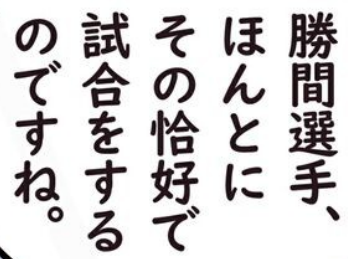 勝間選手、
ほんとに
その恰好で
試合をする
のですね。